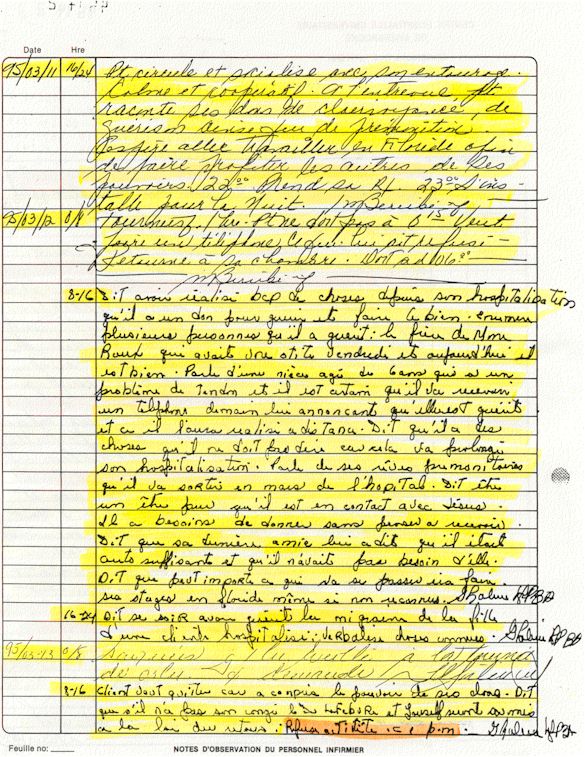 Date Hre
95/03/11 16/24 Pt. circule et socialise avec son entourage.
Calme et coopératif. A l'entrevue pt
raconte ses dons de clairvoyance, de
guérison ainsi que de prémonition.
aller travailler en Floride afin
de faire profiter les autres de ses
pouvoirs. 22⁰⁰ Prend sa Rx. 23⁰⁰ S'ins-
talle pour la nuit.
95/03/12 0/8 Pt ne dort pas à 0¹⁵ Veut
faire un téléphone ce qui lui est refusé
Retourne à sa chambre. Dort ad
8-16 Dit avoir réalisé bcp de choses depuis son hospitalisation
qu'il a un don pour guérir et faire le bien. énumère
plusieurs personnes qu'il a guéri: le frère de Mme
Roux qui avait une otite vendredi et aujourd'hui il
est bien. Parle d'une nièce agé de 6 ans qui a un
problème de tendon et il est certain qu'il va recevoir
un téléphone demain lui annonçant qu'elle est guérit
et ce il l'aura réalisé a distance. Dit qu'il a des
choses qu'il ne doit pas dire car cela va prolonger
son hospitalisation. Parle de ses rêves prémonitoires
qu'il va sortir en mars de l'hopital. Dit être
un être pur qu'il est en contact avec Jésus.
Il a besoins de donner sans penser a recevoir.
Dit que sa dernière amie lui a dit qu'il était
auto suffisant et qu'il n'avait pas besoin d'elle.
Dit que peut importe ce qui va se passer ira faire
ses stages en floride même si non reconnus.
16-24 Dit ce soir avoir guérit la migraine de la fille
d'une cliente hospitalisé. Verbalise choses connues.
95-03-13 0/8
de celui
8-16 Client veut quitter car a compris le pouvoir de ses dons. Dit
que s'il n'a pas son congé le Dr Lefebvre et seront soumis
a la loi du retour. Refuse activité p.m.
Feuille no: NOTES D'OBSERVATION DU PERSONNEL INFIRMIER